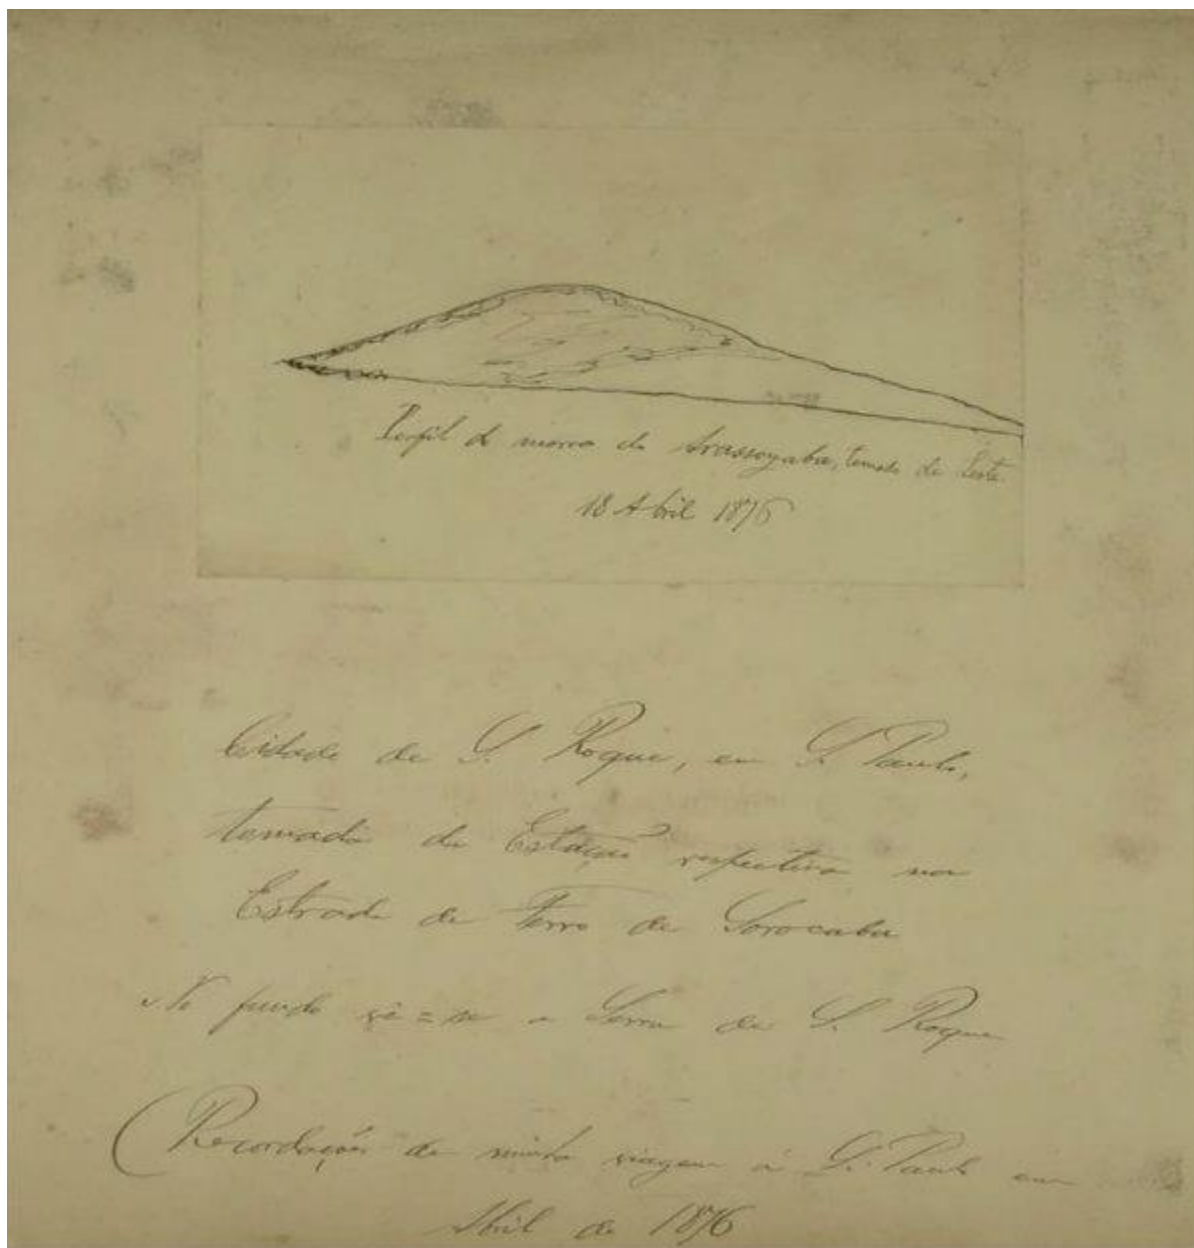 Perfil do morro de Arassoyaba, tomado de Leste.
18 Abril 1876
Cidade de S. Roque, em S. Paulo,
tomada da Estação respectiva na
Estrada de Ferro de Sorocaba
No fundo vê=se a Serra de S. Roque
(Recordações de minha viagem á S. Paulo em
Abril de 1876